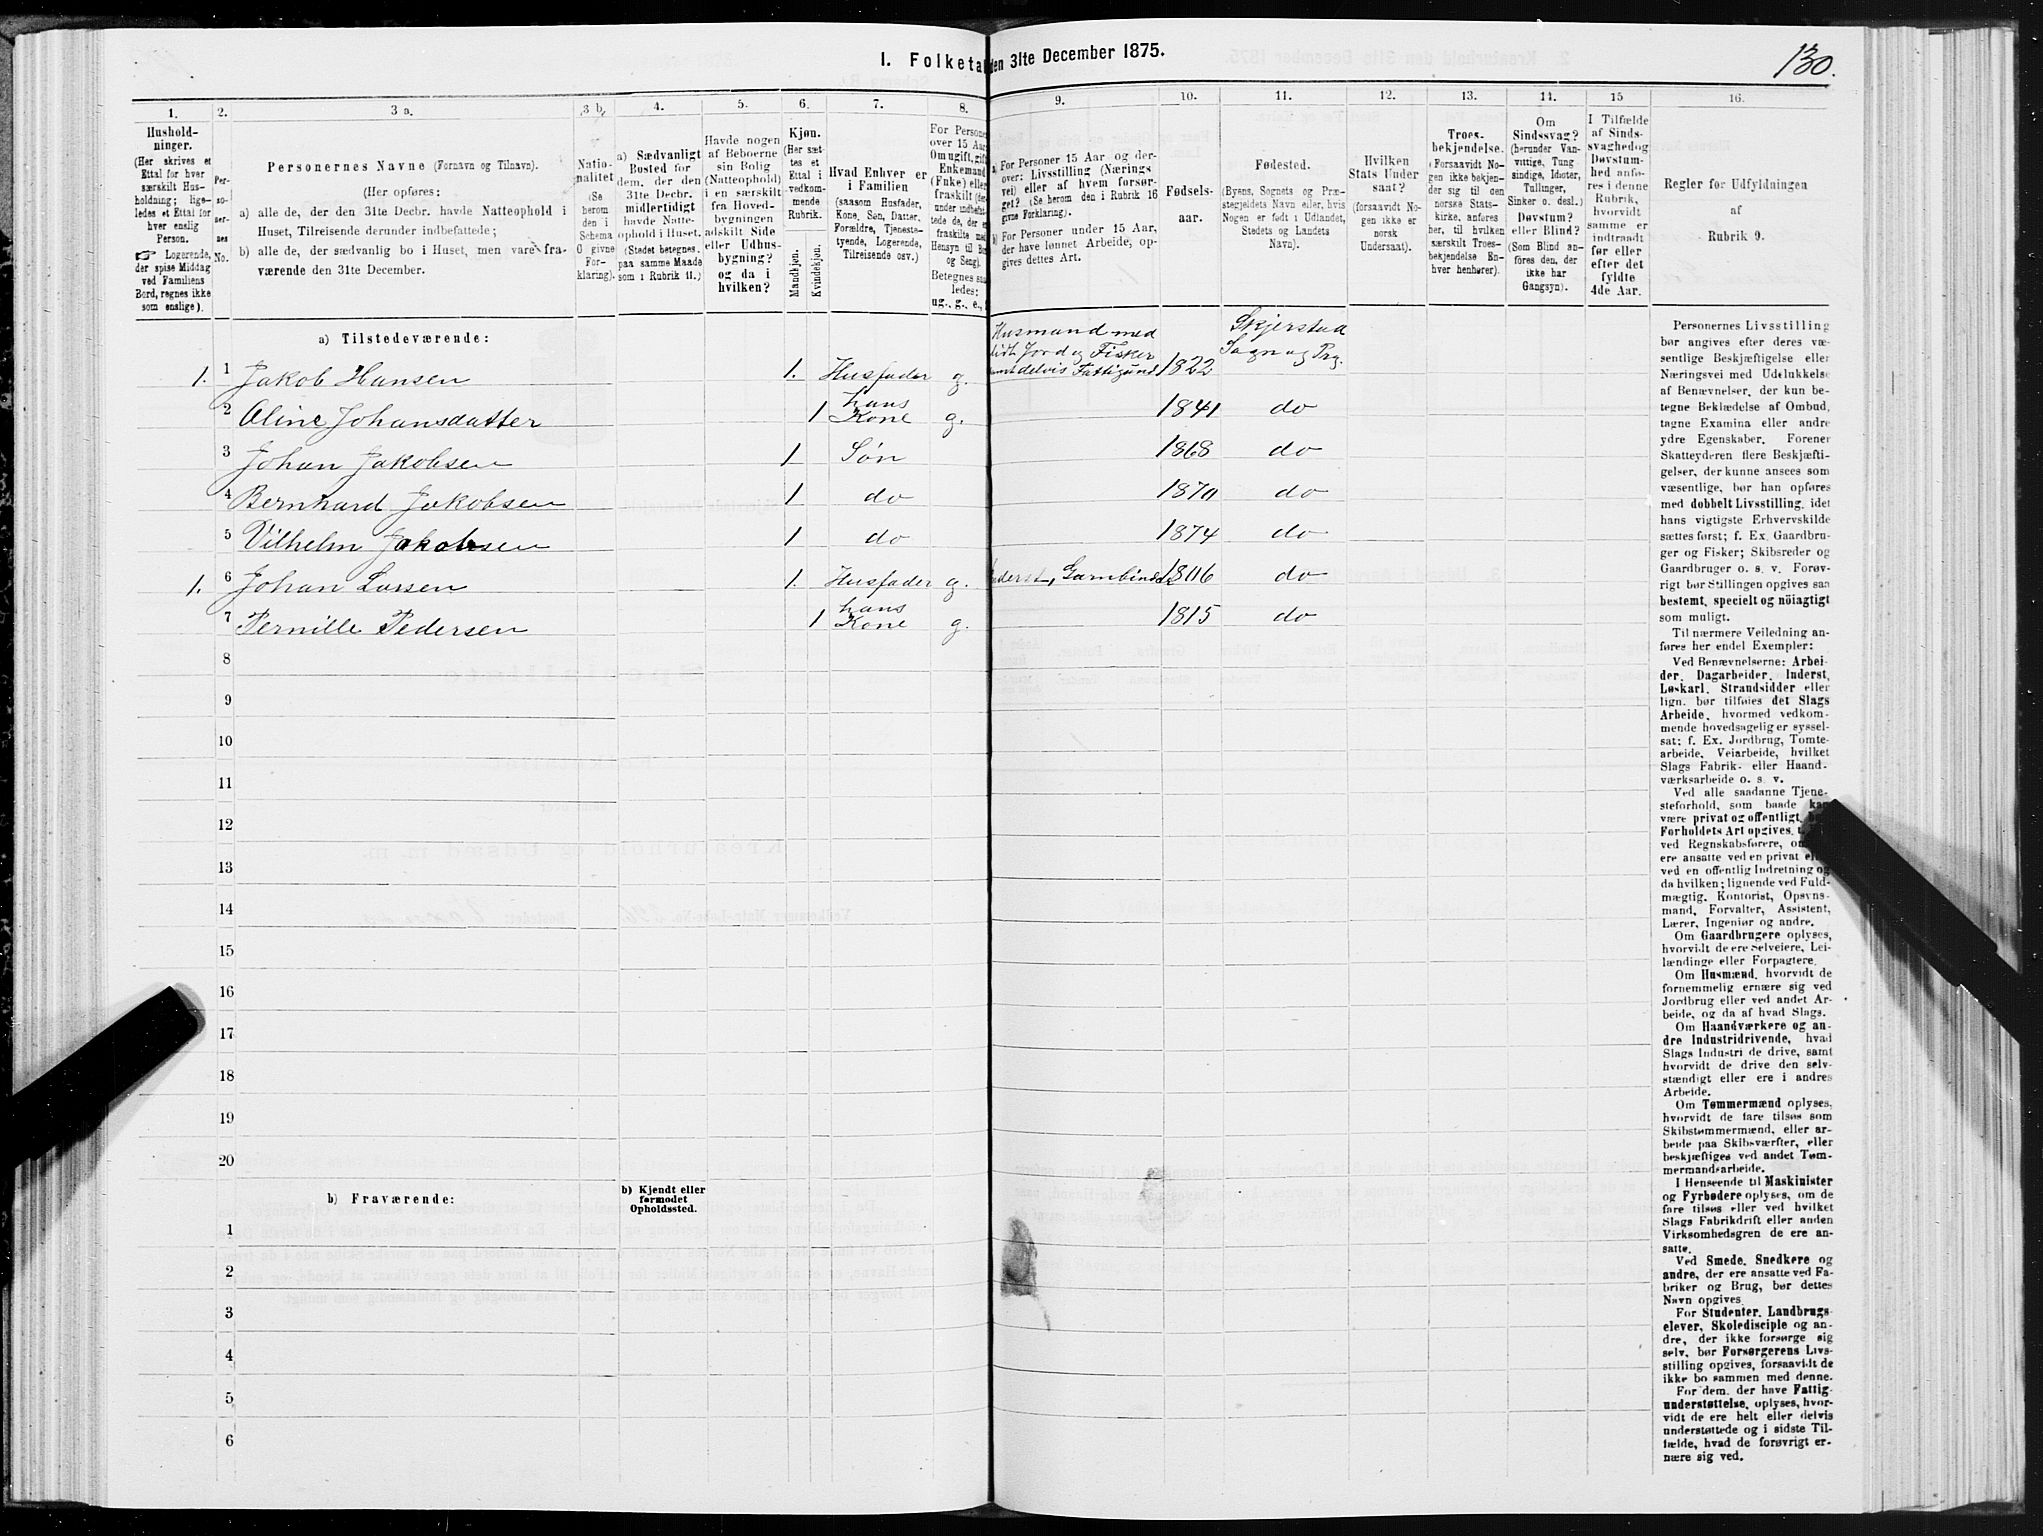 I. Folketal den 31te December 1875.
130.
1.
Hushold-
ninger.
(Her skrives et
Ettal for hver
særskilt Hus-
holdning; lige-
ledes et Ettal for
hver enslig
Person.
☞ Logerende,
der spise Middag
ved Familiens
Bord, regnes ikke
som enslige).
2.
Per-
so-
ner-
nes
No.
3 a.
Personernes Navne (Fornavn og Tilnavn).
(Her opføres:
a) alle de, der den 31te Decbr. havde Natteophold i
Huset, Tilreisende derunder indbefattede;
b) alle de, der sædvanlig bo i Huset, men vare fra-
værende den 31te December.
3 b.
Natio-
nalitet
(Se
herom
den i
Schema
O givne
For-
klaring).
4.
a) Sædvanligt
Bosted for
dem, der den
31te Decbr.
midlertidigt
havde Natte-
ophold i Huset.
(Stedet betegnes
paa samme Maade
som i Rubrik 11.)
5.
Havde nogen
af Beboerne
sin Bolig
(Natteophold)
i en særskilt
fra Hoved-
bygningen
adskilt Side
eller Udhus-
bygning?
og da i
hvilken?
6.
Kjøn.
(Her sæt-
tes et
Ettal i
vedkom-
mende
Rubrik.
Mandkjøn.
Kvindekjøn.
7.
Hvad Enhver er
i Familien
(saasom Husfader,
Kone, Søn, Datter,
Forældre, Tjeneste-
tyende, Logerende,
Tilreisende osv.)
8.
For Personer
over 15 Aar
Om ugift, gift
Enkemand
(Enke) eller
fraskilt
Betegnes saa
ledes:
ug., g., e.,
9.
a) For Personer 15 Aar og der-
over: Livsstilling (Nærings
vei) eller af hvem forsør-
get? (Se herom den i Rubrik 16
givne Forklaring).
b) For Personer under 15 Aar,
der have lønnet Arbeide, op-
gives dettes Art.
10.
Fødsels-
aar.
11.
Fødested.
(Byens, Sognets og Præ-
stegjeldets Navn eller, hvis
Nogen er født i Udlandet,
Stedets og Landets
Navn).
12.
Hvilken
Stats Under
saat?
(forsaavidt No-
gen ikke er
norsk
Undersaat).
13.
Troes-
bekjendelse.
(Forsaavidt No-
gen ikke bekjen-
der sig til den
norske Stats-
kirke, anføres
her, til hvilken
særskilt Troes-
bekjendelse En-
hver henhører).
14.
Om
Sindssvag?
(herunder Van-
vittige, Tung
sindige, Idioter,
Tullinger,
Sinker o. desl.)
Døvstum?
eller Blind?
(Som Blind an-
føres den, der
ikke har
Gangsyn).
15
I Tilfælde
af Sinds-
svaghed og
Døvstum-
hed anfø-
res i denne
Rubrik,
hvorvidt
samme er
indtraadt
før eller
efter det
fyldte
4de Aar.
16.
Regler for Udfyldningen
af
Rubrik 9.
a) Tilstedeværende:
Husmand med
lidt Jord og Fisker
samt delvis Fattigund
Skjerstad
Sogn og Prg.
1. 1 Jakob Hansen 1. Husfader g. 1822
2 Oline Johansdatter 1 hans Kone g. 1841 do
3 Johan Jakobsen 1 Søn 1868 do
4 Bernhard Jakobsen 1 do 1870 do
5 Vilhelm Jakobsen 1 do 1874 do
1. 6 Johan Larsen 1. Husfader g. Inderst, Garnbinder 1806 do
7 Pernille Pedersen 1 hans Kone g. 1815 do
8
9
10
11
12
13
14
15
16
17
18
19
20
b) Fraværende:
b) Kjendt eller
formodet
Opholdssted.
1
2
3
4
5
6
Personernes Livsstilling
bør angives efter deres væ-
sentlige Beskjæftigelse eller
Næringsvei med Udelukkelse
af Benævnelser, der kun be-
tegne Beklædelse af Ombud,
tagne Examina eller andre
ydre Egenskaber. Forener
Skatteyderen flere Beskjæfti-
gelser, der kunne ansees som
væsentlige, bør han opføres
med dobbelt Livsstilling, idet
hans vigtigste Erhvervskilde
sættes først; f. Ex. Gaardbru-
ger og Fisker; Skibsreder og
Gaardbruger o. s. v. Forøv-
rigt bør Stillingen opgives saa
bestemt, specielt og nöiagtigt
som muligt.
Til nærmere Veiledning an-
føres her endel Exempler:
Ved Benævnelserne: Arbei-
der, Dagarbeider, Inderst,
Løskarl, Strandsidder eller
lign. bør tilføies det Slags
Arbeide, hvormed vedkom-
mende hovedsagelig er syssel-
sat; f. Ex. Jordbrug, Tomte-
arbeide, Veiarbeide, hvilket
Slags Fabrik- eller Haand-
værksarbeide o. s. v.
Ved alle saadanne Tjene-
steforhold, som baade kan
være privat og offentligt, bør
Forholdets Art opgives,
ved Regnskabsførere, om
ere ansatte ved en privat eller
ved en offentlig Indretning og
da hvilken; lignende ved Fuld-
mægtig, Kontorist, Opsyns-
mand, Forvalter, Assistent,
Lærer, Ingeniør og andre.
Om Gaardbrugere oplyses,
hvorvidt de ere Selveiere, Lei-
lændinge eller Forpagtere.
Om Husmænd, hvorvidt de
fornemmelig ernære sig ved
Jordbrug eller ved andet Ar-
beide, og da af hvad Slags.
Om Haandværkere og an-
dre Industridrivende, hvad
Slags Industri de drive, samt
hvorvidt de drive den selv-
stændigt eller ere i andres
Arbeide.
Om Tømmermænd oplyses,
hvorvidt de fare tilsøs som
Skibstømmermænd, eller ar-
beide paa Skibsværfter, eller
beskjæftiges ved andet Tøm-
mermandsarbeide.
I Henseende til Maskinister
og Fyrbødere oplyses, om de
fare tilsøs eller ved hvilket
Slags Fabrikdrift eller anden
Virksomhedsgren de ere an-
satte.
Ved Smede, Snedkere og
andre, der ere ansatte ved Fa-
briker og Brug, bør dettes
Navn opgives.
For Studenter, Landbrugs-
elever, Skoledisciple og an-
dre, der ikke forsørge sig
selv, bør Forsørgerens Livs-
stilling opgives, forsaavidt de
ikke bo sammen med denne.
For dem, der have Fattig-
understøttelse, oplyses, hvor-
vidt de ere helt eller delvis
understøttede og i sidste Til-
fælde, hvad de forøvrigt er-
nære sig ved.